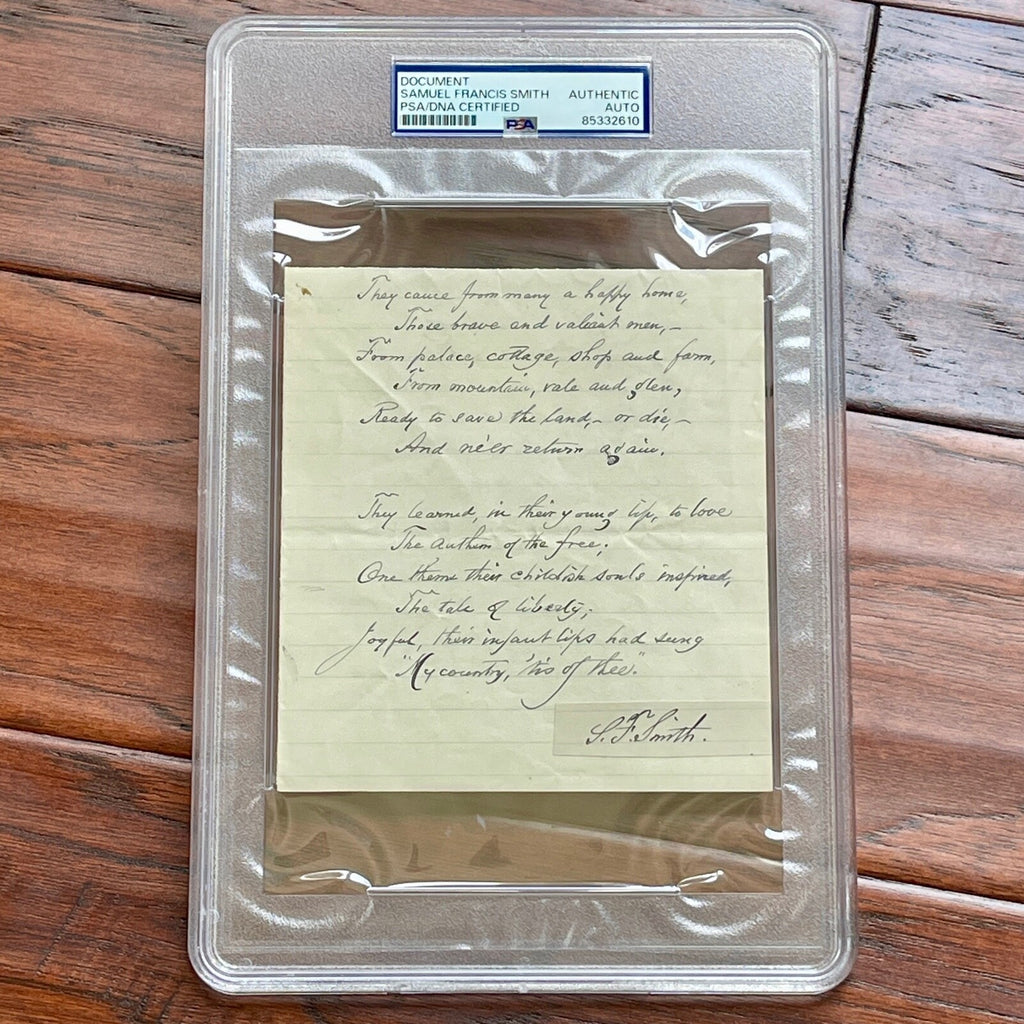 DOCUMENT
SAMUEL FRANCIS SMITH
PSA/DNA CERTIFIED
AUTHENTIC
AUTO
85332610
PSA
They came from many a happy home,
Those brave and valiant men,–
From palace, cottage, shop and farm,
From mountain, vale and glen,
Ready to save the land,– or die,–
And ne'er return again.
They learned, in their young lip, to love
The Anthem of the free;
One theme their childish souls inspired,
The tale of liberty;
Joyful, their infant lips had sung
"My country, 'tis of thee."
S. F. Smith.